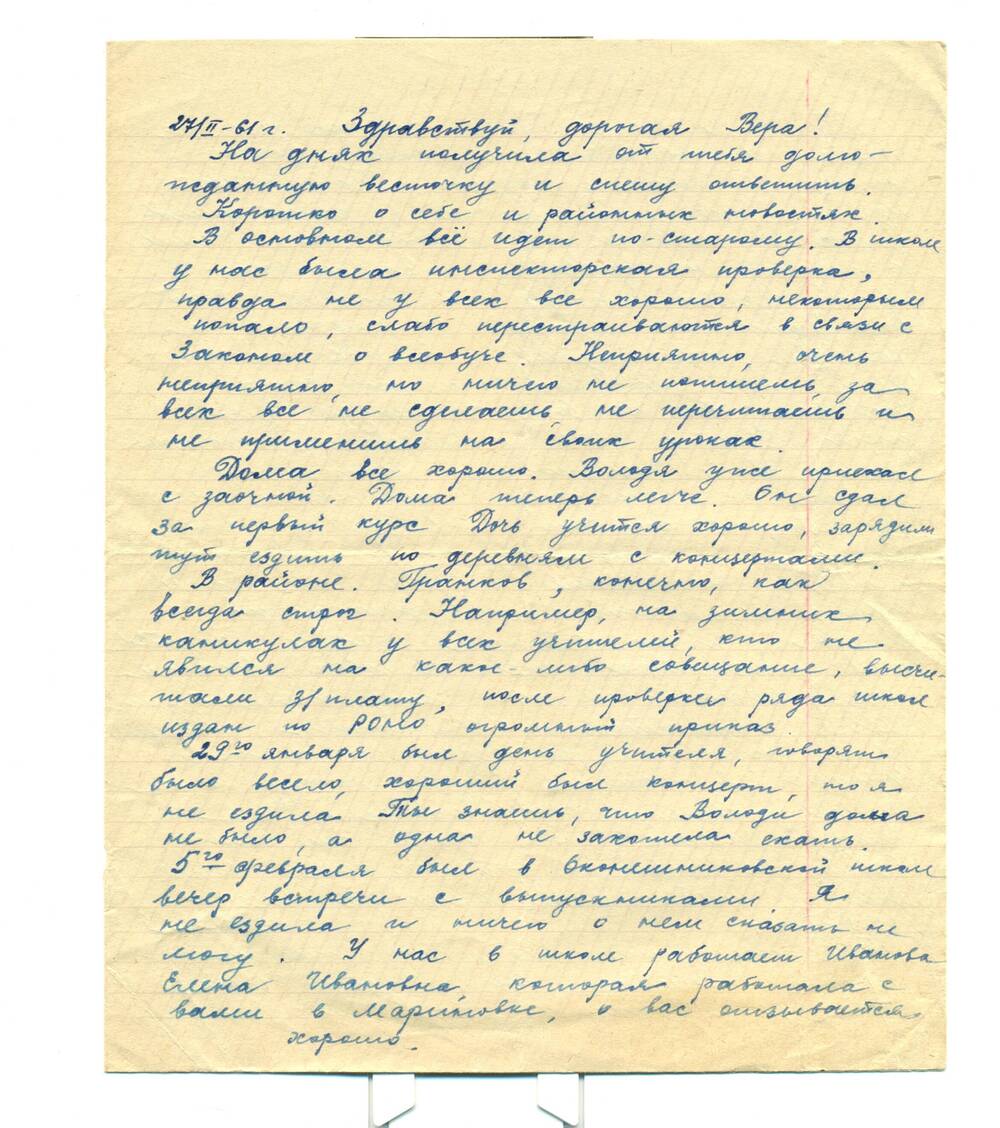 27/II-61 г. Здравствуй, дорогая Вера!
На днях получила от тебя долго-
жданную весточку и спешу ответить.
Коротко о себе и районных новостях.
В основном всё идет по-старому. В школе
у нас была инспекторская проверка,
правда не у всех все хорошо, некоторым
попало, слабо перестраиваются в связи с
Законом о всеобуче. Неприятно, очень
неприятно, но ничего не попишешь, за
всех все не сделаешь, не перечитаешь и
не применишь на своих уроках.
Дома все хорошо. Володя уже приехал
с заочной. Дома теперь легче. Он сдал
за первый курс Дочь учится хорошо, зарядили
тут ездить по деревням с концертами.
В районе. Гранков, конечно, как
всегда строг. Например, на зимних
каникулах у всех учителей, кто не
явился на какое-либо совещание, высчи-
тали з/плату, после проверки ряда школ
издан по РОНО огромный приказ.
29го января был день учителя, говорят
было весело, хороший был концерт, но я
не ездила. Ты знаешь, что Володи дома
не было, а одна не захотела ехать.
5го февраля был в Оконешниковской школе
вечер встречи с выпускниками. Я
не ездила и ничего о нем сказать не
могу. У нас в школе работает Иванова
Елена Ивановна, которая работала с
вами в Мариновке, о вас отзывается
хорошо.